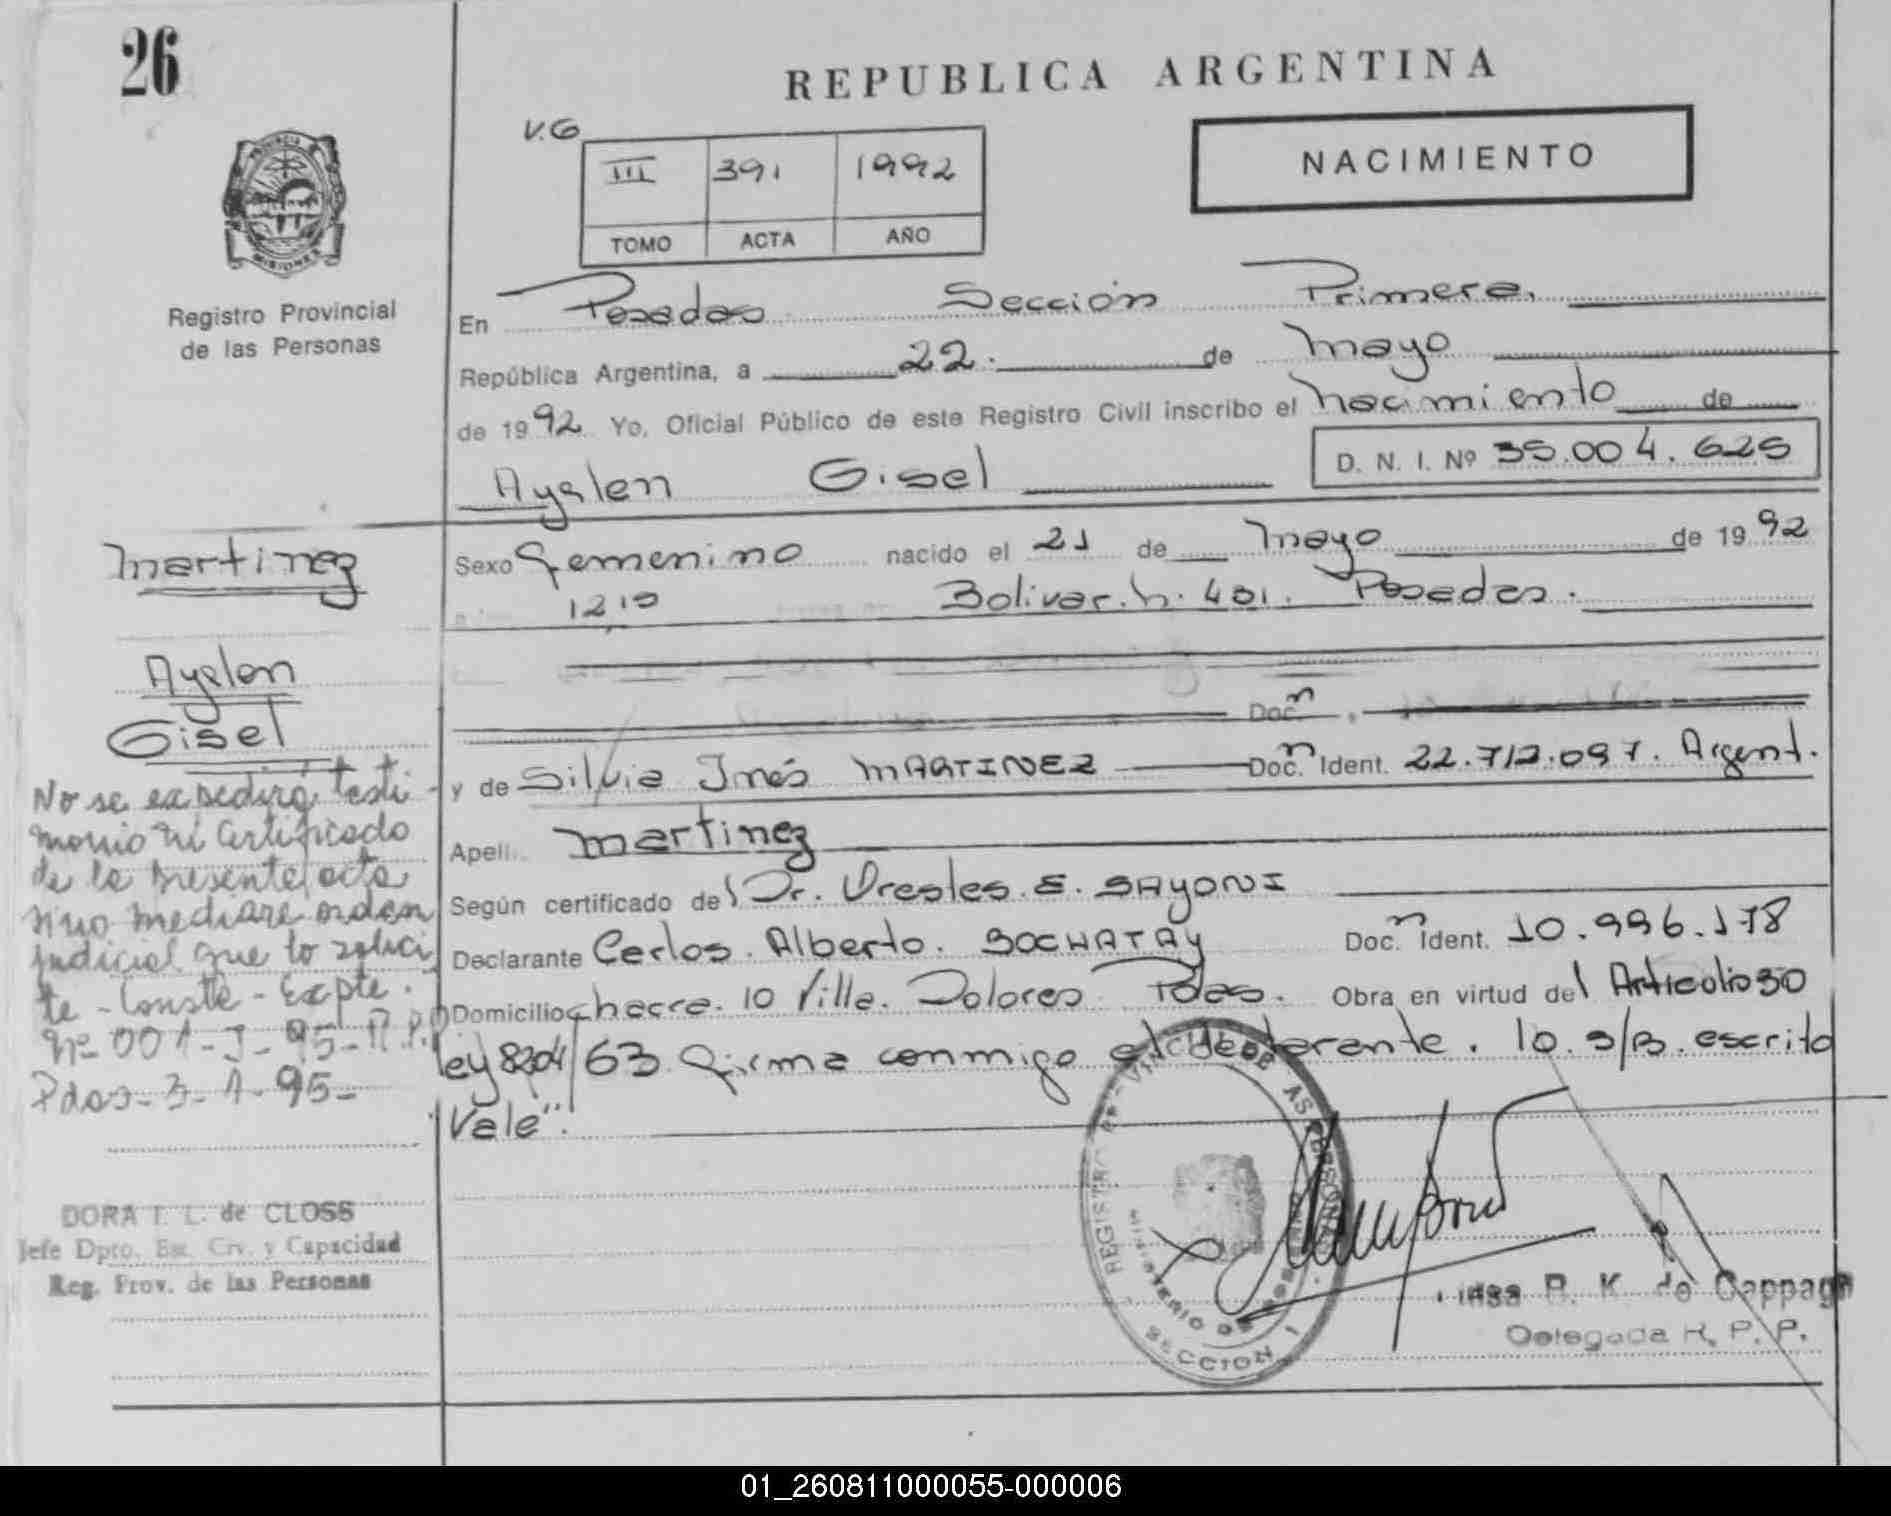 26
REPUBLICA ARGENTINA
V.G
III 391 1992
TOMO ACTA AÑO
NACIMIENTO
PROVINCIA
MISIONES
Registro Provincial
de las Personas
En Posadas Sección Primera.
República Argentina, a 22. de mayo
de 1992 Yo, Oficial Público de este Registro Civil inscribo el nacimiento de
Ayelen Gisel D. N. I. Nº 35.004.625
Martinez
Sexo Femenino nacido el 21 de Mayo de 1992
12,10 Bolivar. n. 401. Posadas.
Ayelen
Gisel
Doc.n
y de Silvia Inés MARTINEZ Doc.n Ident. 22.712.097. Argent.
Apell. Martinez
Según certificado del Dr. Orestes. E. SAYONI
Declarante Carlos. Alberto. BOCHATAY Doc.n Ident. 10.996.178
Domicilio chacra. 10 Villa. Dolores Pdas. Obra en virtud del Articulo 30
ley 8204/63 Firma conmigo el declarante. 10. s/B. escrito
"Vale".
No se expedirá testi-
monio ni Certificado
de la presente acta
sino mediare orden
judicial que lo solici
te - Conste - Expte.
Nº 001-J-95-R.P.P
Pdas-3-1-95-
DORA T. L. de CLOSS
Jefe Dpto. Est. Civ. y Capacidad
Reg. Prov. de las Personas
REGISTRO DE LAS PERSONAS
MINISTERIO DE
SECCION 1
R. K. de Cappagli
Delegada R. P. P.
01_260811000055-000006